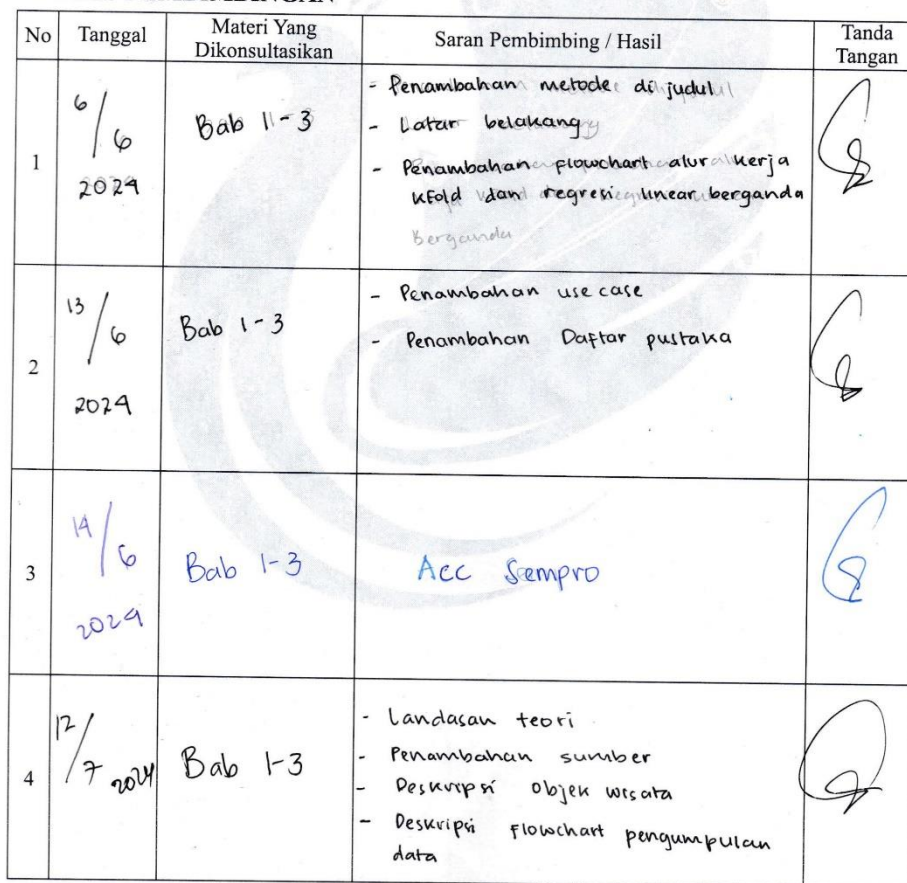 No Tanggal Materi Yang Dikonsultasikan Saran Pembimbing / Hasil Tanda Tangan
1
6/6
2024
Bab 1-3
- Penambahan metode di judul
- Latar belakang
- Penambahan flowchart alur kerja
KFold dan regresi linear berganda
Berganda
2
13/6
2024
Bab 1-3
- Penambahan use case
- Penambahan Daftar pustaka
3
14/6
2024
Bab 1-3
Acc Sempro
4
12/7 2024
Bab 1-3
- Landasan teori
- Penambahan sumber
- Deskripsi objek wisata
- Deskripsi flowchart pengumpulan
data